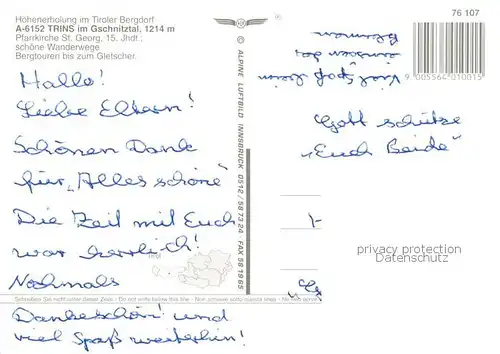 Höhenerholung im Tiroler Bergdorf
A-6152 TRINS im Gschnitztal, 1214 m
Pfarrkirche St. Georg, 15. Jhdt.;
schöne Wanderwege
Bergtouren bis zum Gletscher.
Hallo!
Liebe Eltern!
Schönen Dank
für „Alles schöne"
Die Zeit mit Euch
war herrlich!
Nochmals
Schreiben Sie nicht unter dieser Zeile - Do not write below this line - Non scrivere sotto questa linea - Ne rien
Dankeschön! und
viel Spaß weiterhin!
© ALPINE LUFTBILD INNSBRUCK 0512 / 58 73 24 FAX 58 19 65
Tirol
76 107
9 005564 010015
Gott schütze
„Euch Beide"
privacy protection
Datenschutz